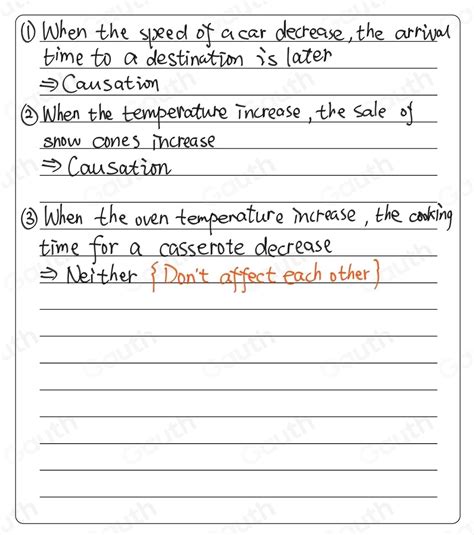 ① When the speed of a car decrease, the arrival
time to a destination is later
⇒ Causation
② When the temperature increase, the sale of
snow cones increase
⇒ Causation
③ When the oven temperature increase, the cooking
time for a casserote decrease
⇒ Neither {Don't affect each other}